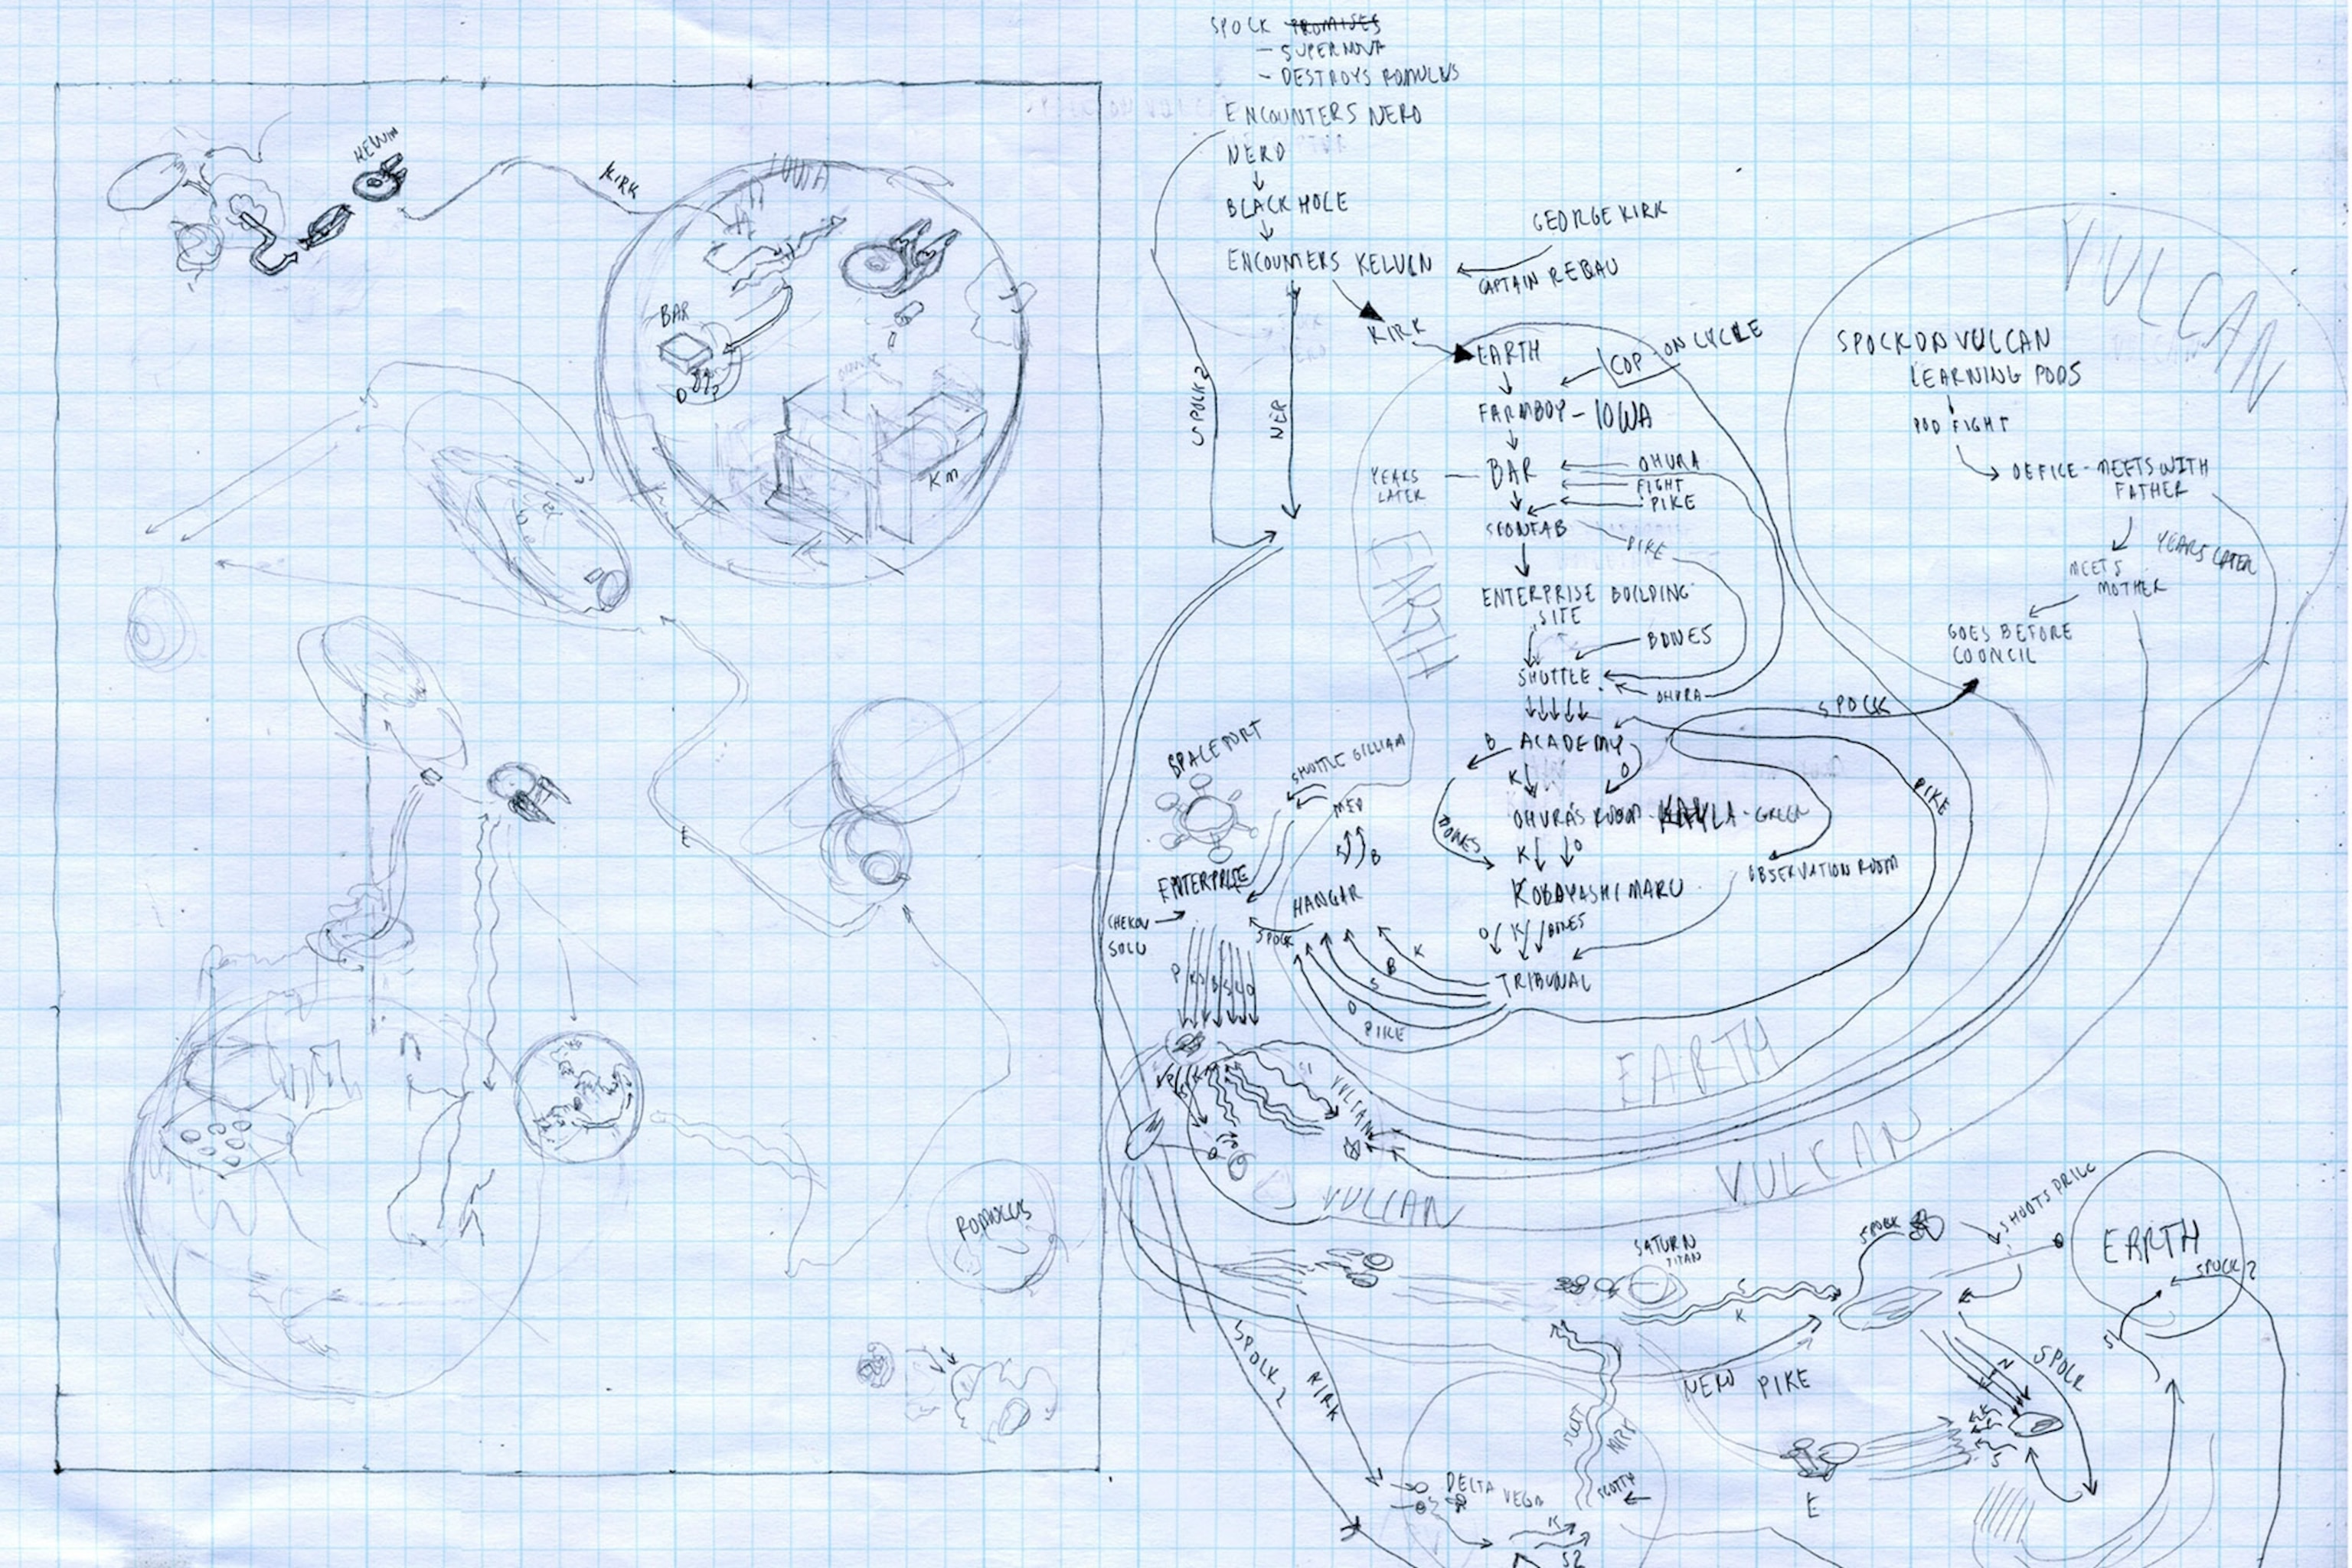 SPOCK PROMISES
- SUPERNOVA
- DESTROYS ROMULUS
ENCOUNTERS NERO
NERO
BLACK HOLE
ENCOUNTERS KELVIN
GEORGE KIRK
CAPTAIN REBAU
KIRK
SPOCK 2
NER
EARTH
COP ON CYCLE
FARMBOY - IOWA
YEARS
LATER
BAR
OHURA
FIGHT
PIKE
PIKE
ENTERPRISE BUILDING
SITE
BONES
SHUTTLE
OHURA
SPOCK
B
ACADEMY
K
O
PIKE
OHURA'S ROOM - KAYLA - GREEN
BONES
K
O
OBSERVATION ROOM
KOBAYASHI MARU
O
K
BONES
TRIBUNAL
K
B
S
O
PIKE
EARTH
EARTH
VULCAN
SPOCK ON VULCAN
LEARNING PODS
POD FIGHT
OFFICE - MEETS WITH
FATHER
YEARS LATER
MEETS
MOTHER
GOES BEFORE
COUNCIL
SPACEPORT
SHUTTLE GILLIAM
MED
K
B
ENTERPRISE
HANGAR
CHEKOV
SOLU
SPOCK
P
VULCAN
VULCAN
VULCAN
SATURN
TITAN
S
K
SPOCK
SHOOTS DRILL
EARTH
SPOCK 2
S1
NERO PIKE
N
SPOCK
S
E
SPOCK 2
KIRK
KIRK
SCOTTY
DELTA VEGA
K
S2
KELVIN
KIRK
IOWA
BAR
KM
E
ROMULUS